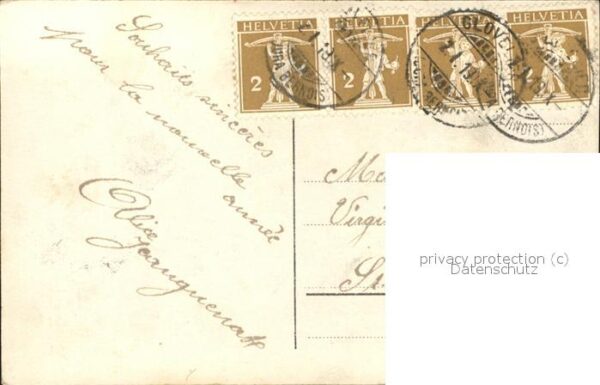 HELVETIA HELVETIA HELVETIA HELVETIA
2 2
GLOVELIER
(JURA BERNOIS)
Souhaits sincères
pour la nouvelle année
Alice
Virgi
privacy protection (c)
Datenschutz